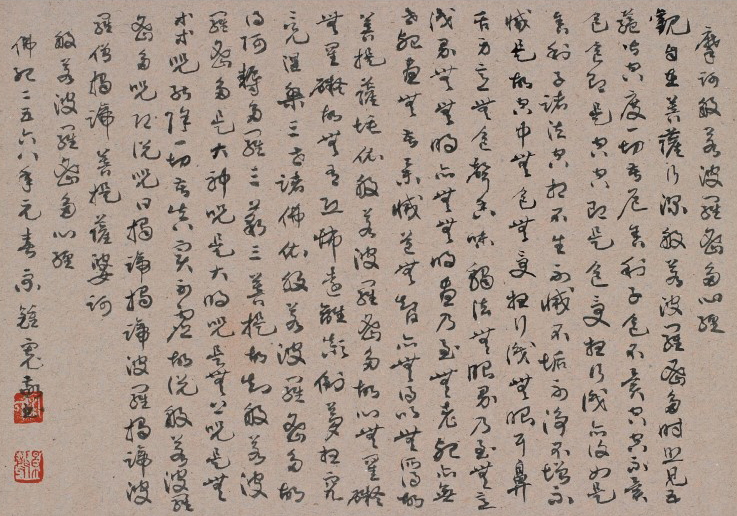 摩訶般若波羅蜜多心經
觀自在菩薩行深般若波羅蜜多時照見五
蘊皆空度一切苦厄舍利子色不異空空不異
色色即是空空即是色受想行識亦復如是
舍利子諸法空相不生不滅不垢不淨不增不
減是故空中無色無受想行識無眼耳鼻
舌身意無色聲香味觸法無眼界乃至無意
識界無無明亦無無明盡乃至無老死亦無
老死盡無苦集滅道無智亦無得以無所得故
菩提薩埵依般若波羅蜜多故心無罣礙
無罣礙故無有恐怖遠離顛倒夢想究
竟涅槃三世諸佛依般若波羅蜜多故
得阿耨多羅三藐三菩提故知般若波
羅蜜多是大神呪是大明呪是無上呪是無
等等呪能除一切苦真實不虛故說般若波羅
蜜多呪即說呪曰揭諦揭諦波羅揭諦波
羅僧揭諦菩提薩婆訶
般若波羅蜜多心經
佛紀二五六八年元春